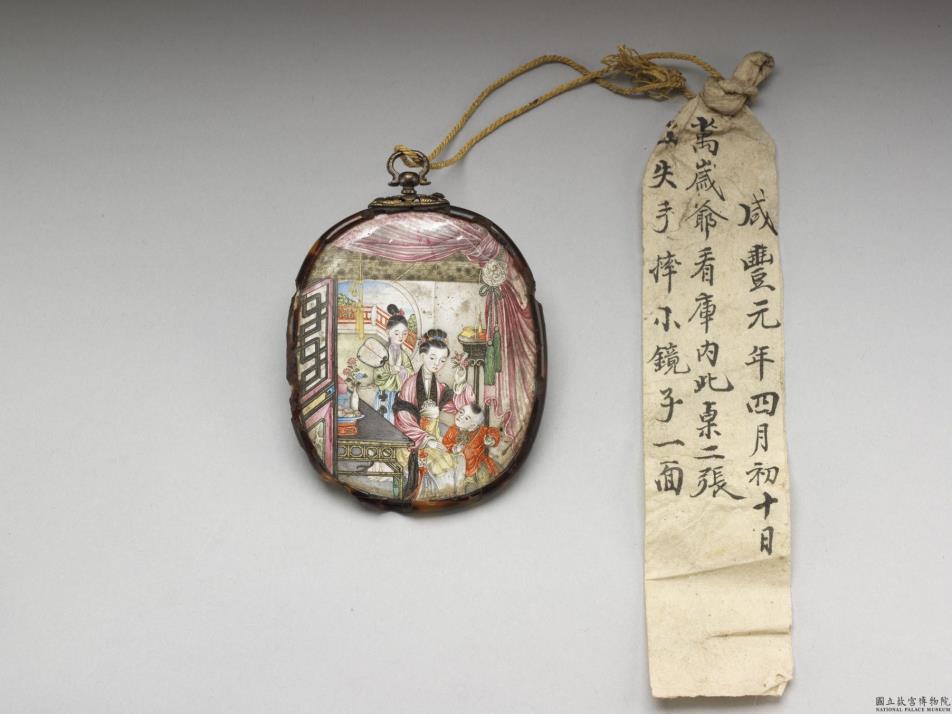 咸豐元年四月初十日
萬歲爺看庫內此桌二張
失手摔小鏡子一面
國立故宮博物院
NATIONAL PALACE MUSEUM